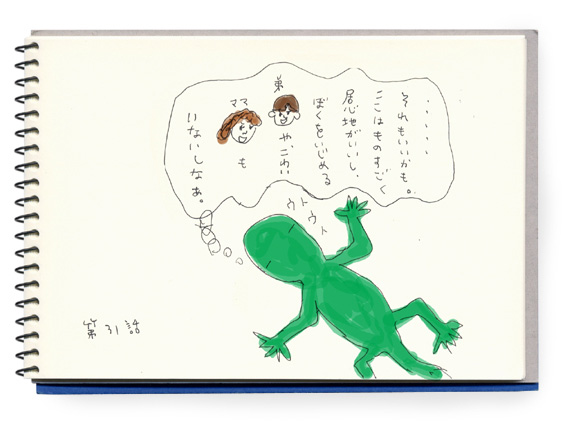 ・・・・・・
それもいいかも。
ここはものすごく
居心地がいいし、
ぼくをいじめる
弟
や、こわい
ママ
も
いないしなぁ。
ウトウト
第31話